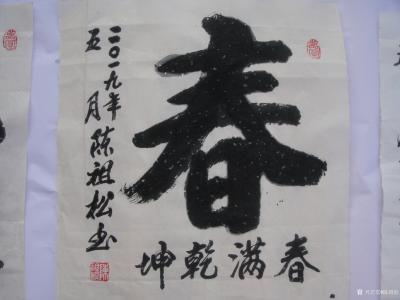 春
春满乾坤
二〇一九年
五月陈祖松书